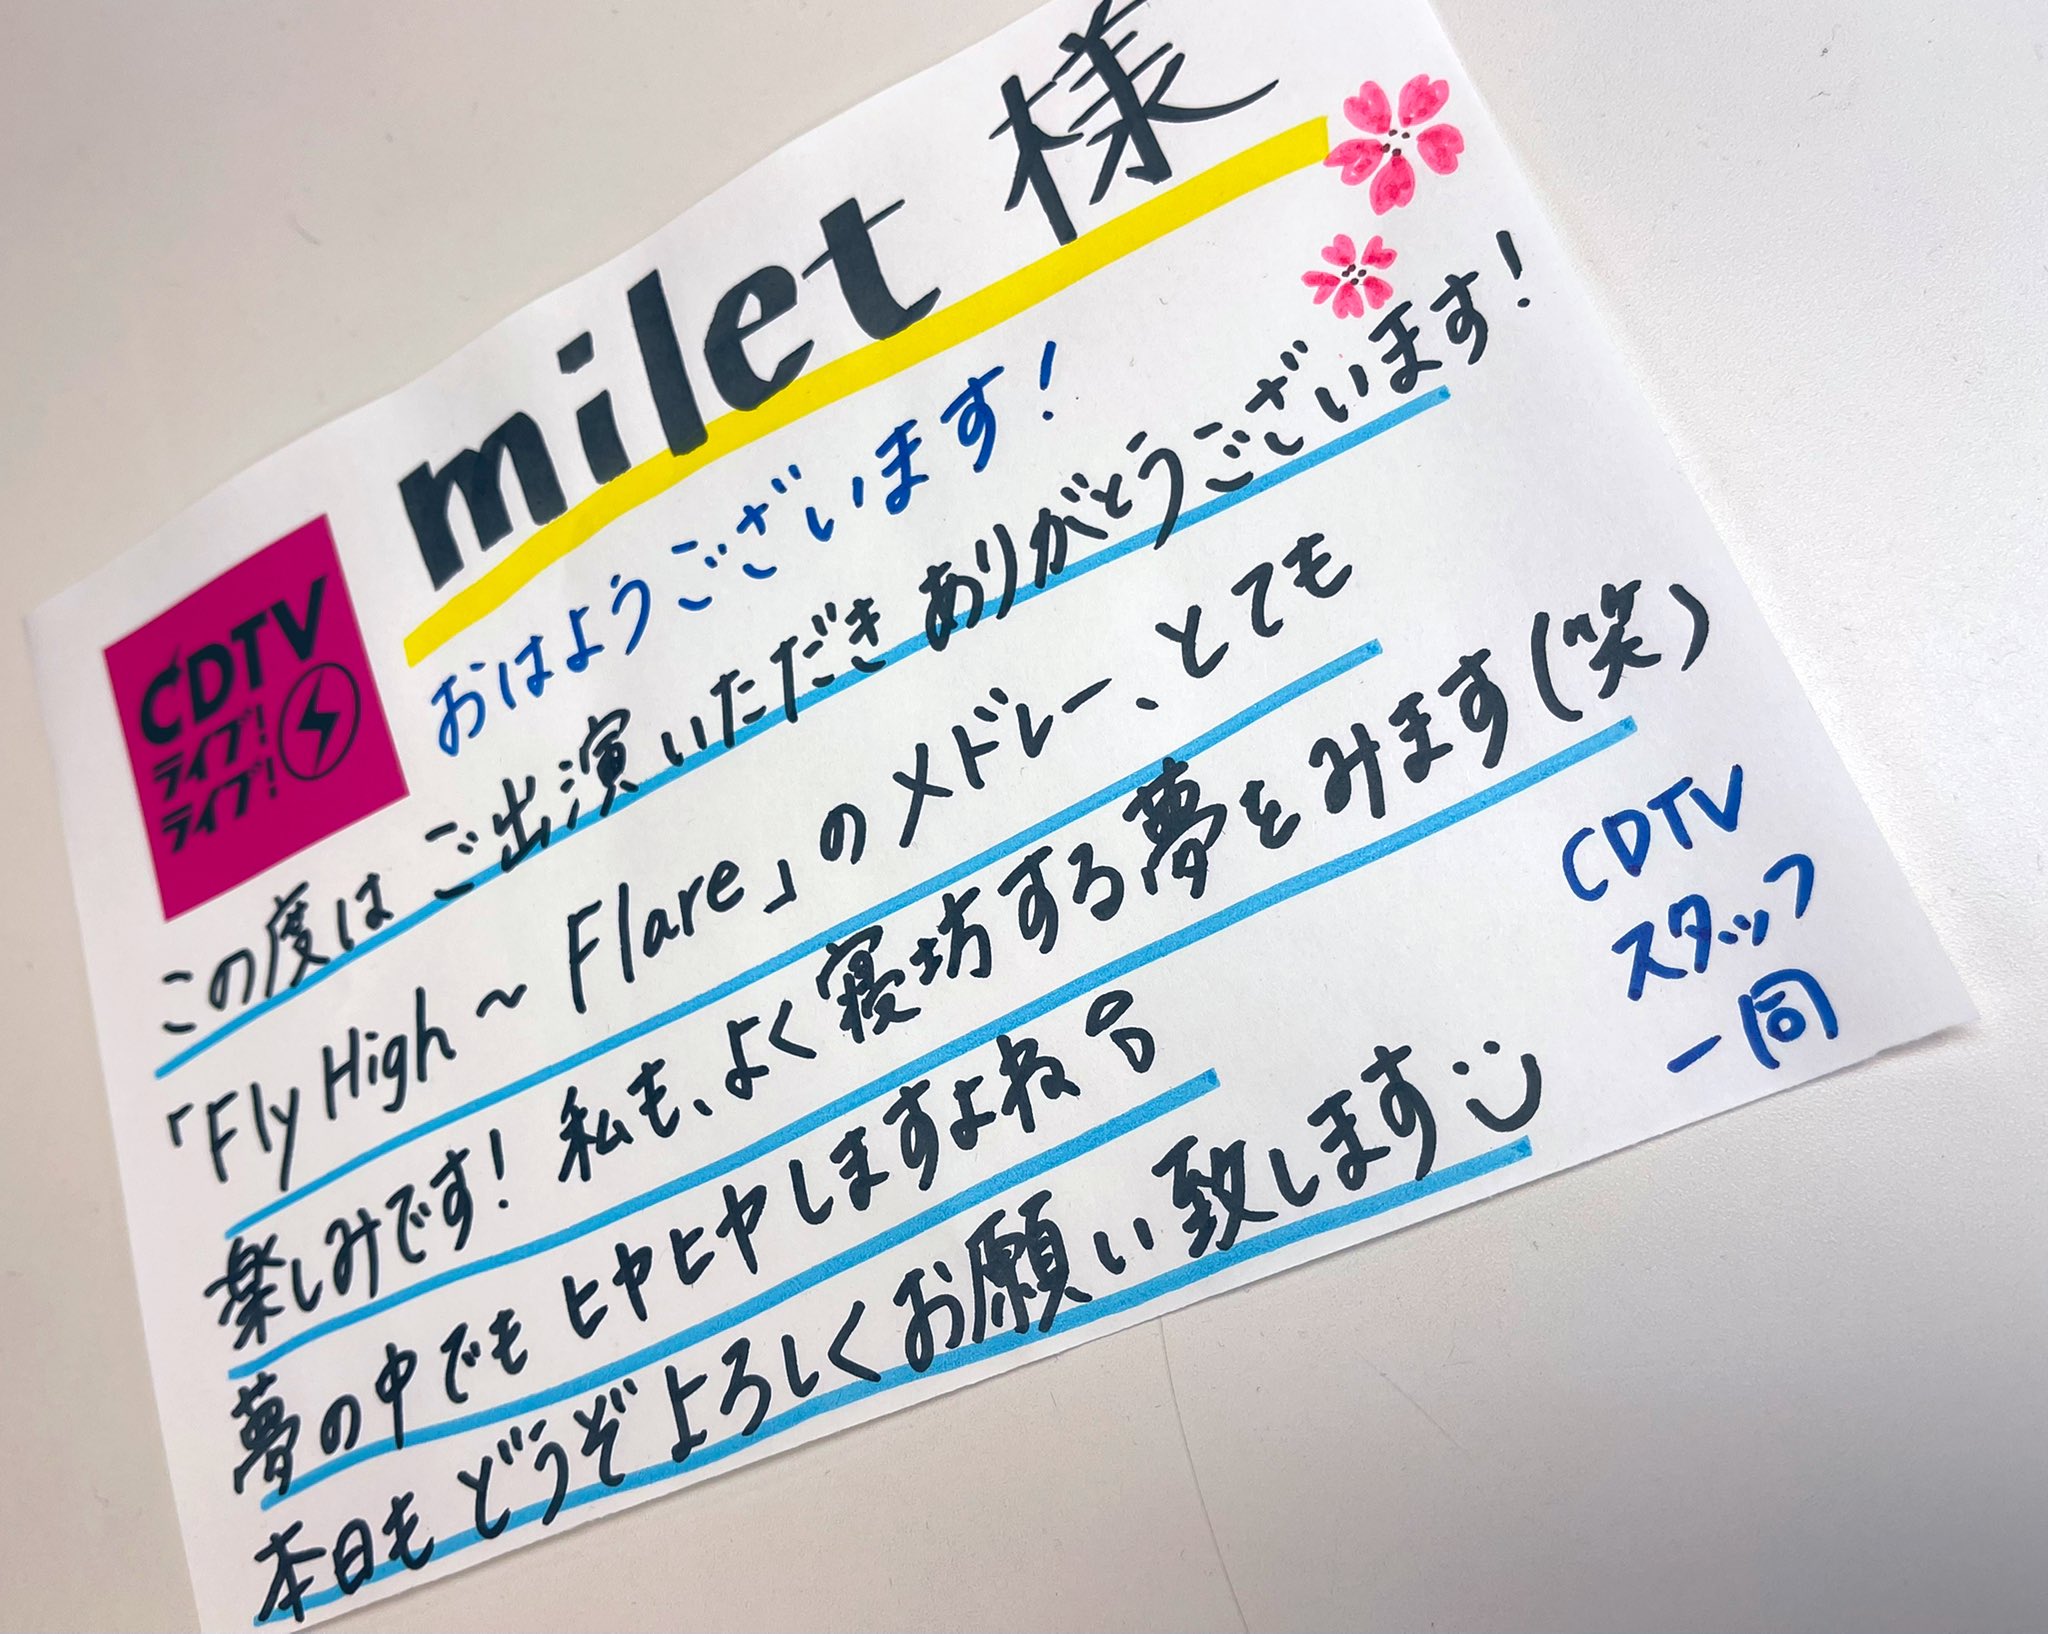 milet 様
CDTV
ライブ!
ライブ!
おはようございます!
この度は ご出演いただき ありがとうございます!
「Fly High ~ Flare」のメドレー、とても
楽しみです! 私も、よく寝坊する夢をみます(笑)
夢の中でも ヒヤヒヤしますよね
本日も どうぞ よろしくお願い致します
CDTV
スタッフ
一同